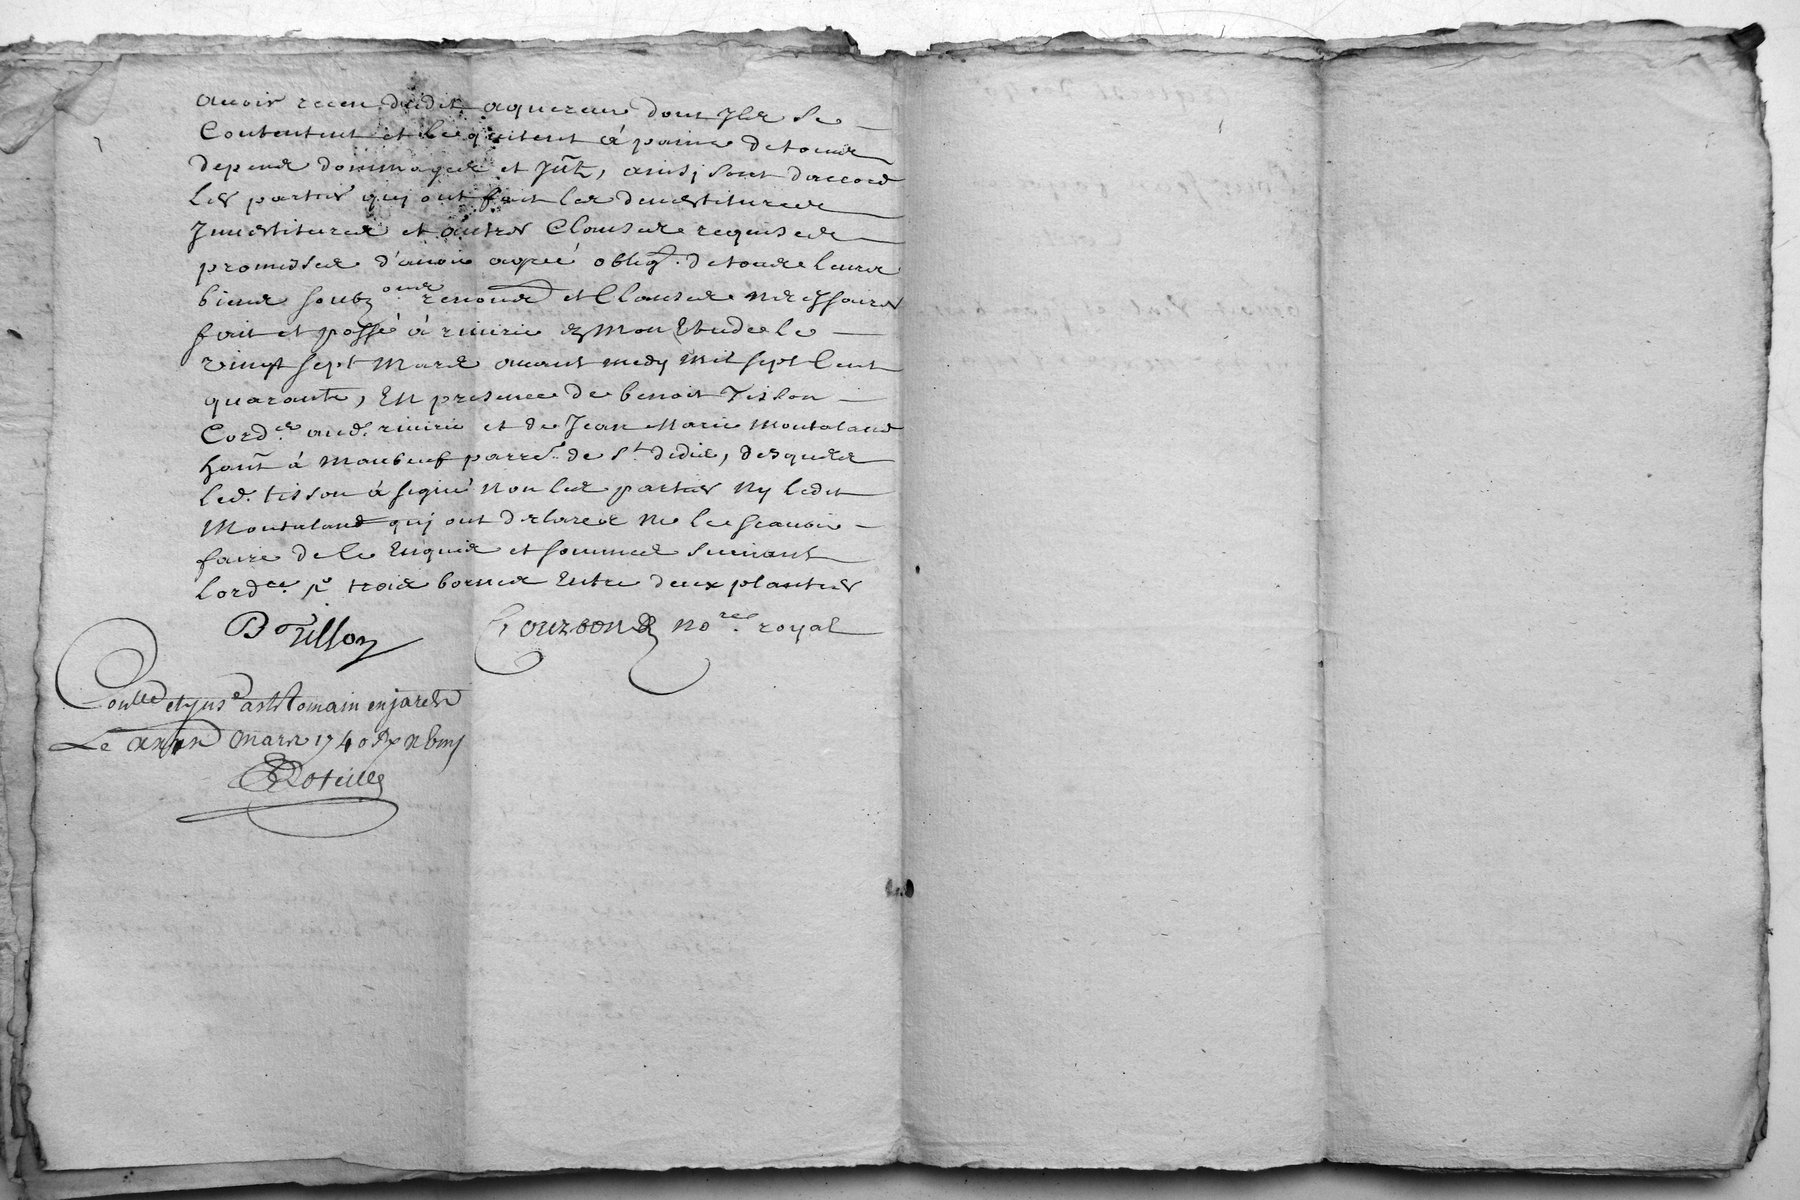 avoir receu dudit aquereur dont Ils se
Contentent et le quitent à paine de tous
depens dommages et Jnt̃, ainsj sont daccord
les parties quj ont fait les devestitures
Jnvestitures et autres Clauses requises
promisses d'avoir agréé oblig.on de tous leurs
biens soubz.ons renons et Clauses necessaires
fait et passé à rivirie ez mon Etude le
vingt sept Mars avant midy Mil sept Cent
quarante, En presence de benoit Tisson
Cord.er aud. rivirie et de Jean Marie Montaland
hañt à Maubeuf parre. de St. didier, desquels
led. tisson à signé non les parties Ny ledit
Montaland quj ont declarez ne le scavoir
faire de le Enquis et sommes suivant
lord.ce trois bornes Entre deux plantées
B Tisson Courbon No.re royal
Conllé et Jns.é a St Romain en jarest
Le Mars 1740